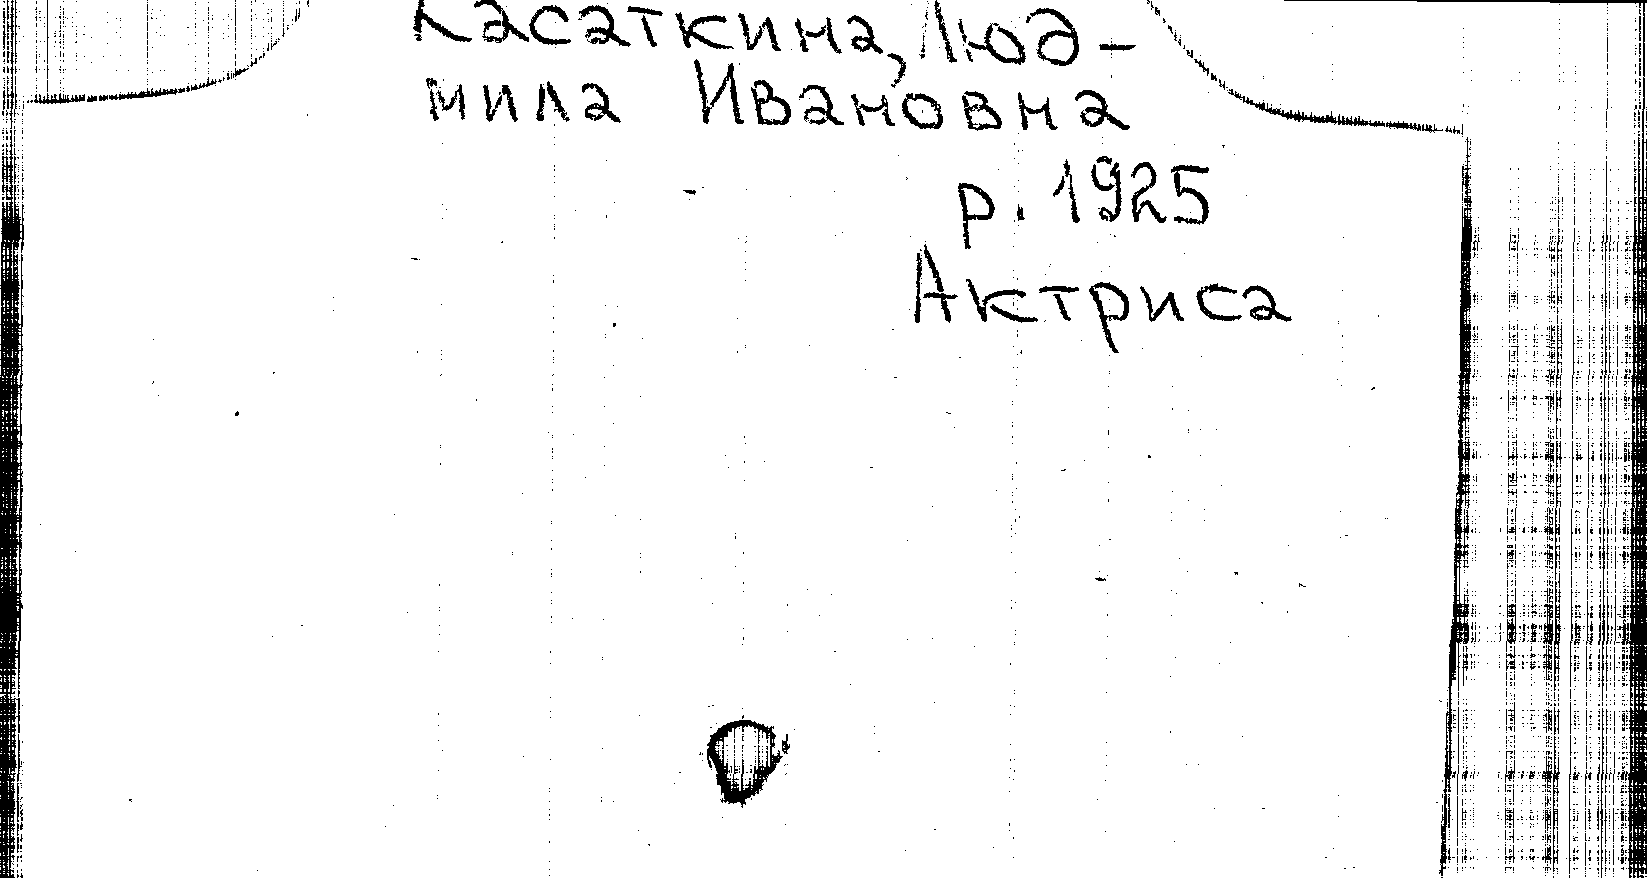 Касаткина, Люд-
мила Ивановна
р. 1925
Актриса